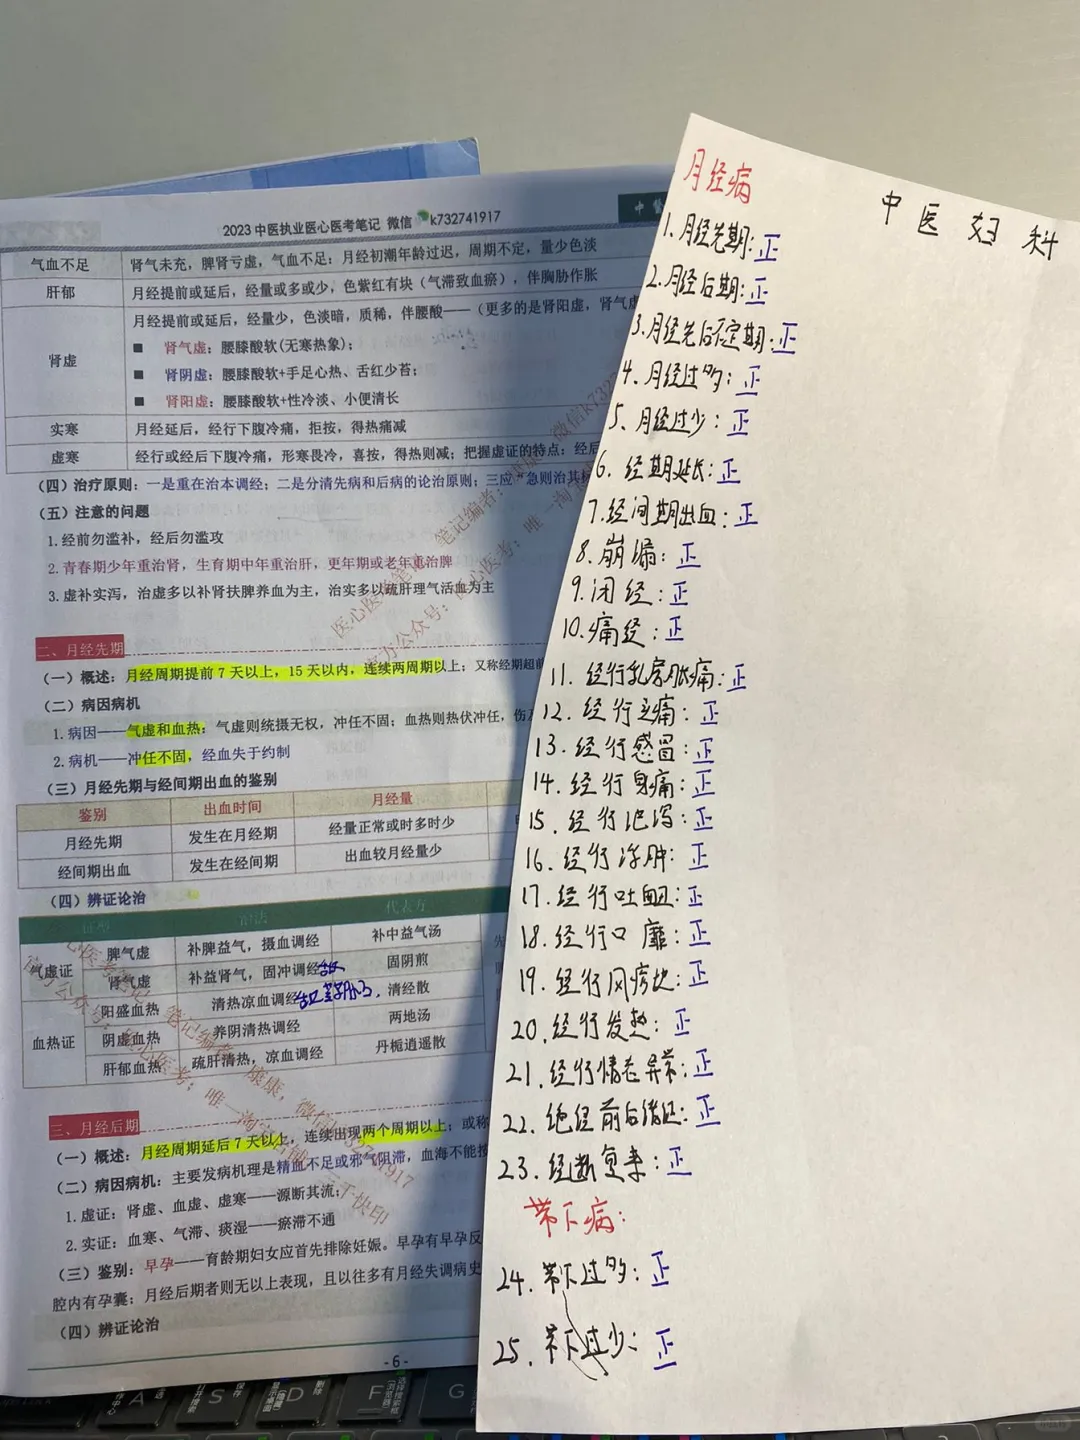 2023 中医执业医心医考笔记 微信 k732741917
气血不足 肾气未充，脾肾亏虚，气血不足：月经初潮年龄过迟，周期不定，量少色淡
肝郁 月经提前或延后，经量或多或少，色紫红有块（气滞致血瘀），伴胸胁作胀
肾虚
月经提前或延后，经量少，色淡暗，质稀，伴腰酸——（更多的是肾阳虚，肾气虚
■ 肾气虚：腰膝酸软(无寒热象)；
■ 肾阴虚：腰膝酸软+手足心热、舌红少苔；
■ 肾阳虚：腰膝酸软+性冷淡、小便清长
实寒 月经延后，经行下腹冷痛，拒按，得热痛减
虚寒 经行或经后下腹冷痛，形寒畏冷，喜按，得热则减；把握虚证的特点：经后
（四）治疗原则：一是重在治本调经；二是分清先病和后病的论治原则；三应“急则治其标
（五）注意的问题
1.经前勿滥补，经后勿滥攻
2.青春期少年重治肾，生育期中年重治肝，更年期或老年重治脾
3.虚补实泻，治虚多以补肾扶脾养血为主，治实多以疏肝理气活血为主
二、月经先期
（一）概述：月经周期提前 7 天以上，15 天以内，连续两周期以上；又称经期超前
（二）病因病机
1.病因——气虚和血热：气虚则统摄无权，冲任不固；血热则热伏冲任，伤及
2.病机——冲任不固，经血失于约制
（三）月经先期与经间期出血的鉴别
鉴别 出血时间 月经量
月经先期 发生在月经期 经量正常或时多时少
经间期出血 发生在经间期 出血较月经量少
（四）辨证论治
证型 治法 代表方
气虚证 脾气虚 补脾益气，摄血调经 补中益气汤
肾气虚 补益肾气，固冲调经 固阴煎
血热证 阳盛血热 清热凉血调经 清经散
阴虚血热 养阴清热调经 两地汤
肝郁血热 疏肝清热，凉血调经 丹栀逍遥散
三、月经后期
（一）概述：月经周期延后 7 天以上，连续出现两个周期以上；或称
（二）病因病机：主要发病机理是精血不足或邪气阻滞，血海不能按
1.虚证：肾虚、血虚、虚寒——源断其流；
2.实证：血寒、气滞、痰湿——瘀滞不通
（三）鉴别：早孕——育龄期妇女应首先排除妊娠。早孕有早孕反
腔内有孕囊；月经后期者则无以上表现，且以往多有月经失调病史
（四）辨证论治
-6-
中医妇科
月经病
1、月经先期：正
2.月经后期：正
3.月经先后不定期：正
4.月经过多：正
5、月经过少：正
6、经期延长：正
7.经间期出血：正
8.崩漏：正
9.闭经：正
10.痛经：正
11.经行乳房胀痛：正
12.经行头痛：正
13.经行感冒：正
14.经行身痛：正
15.经行泄泻：正
16.经行浮肿：正
17.经行吐衄：正
18.经行口糜：正
19.经行风疹块：正
20.经行发热：正
21.经行情志异常：正
22.绝经前后诸证：正
23.经断复来：正
带下病：
24.带下过多：正
25.带下过少：正
A S D F G